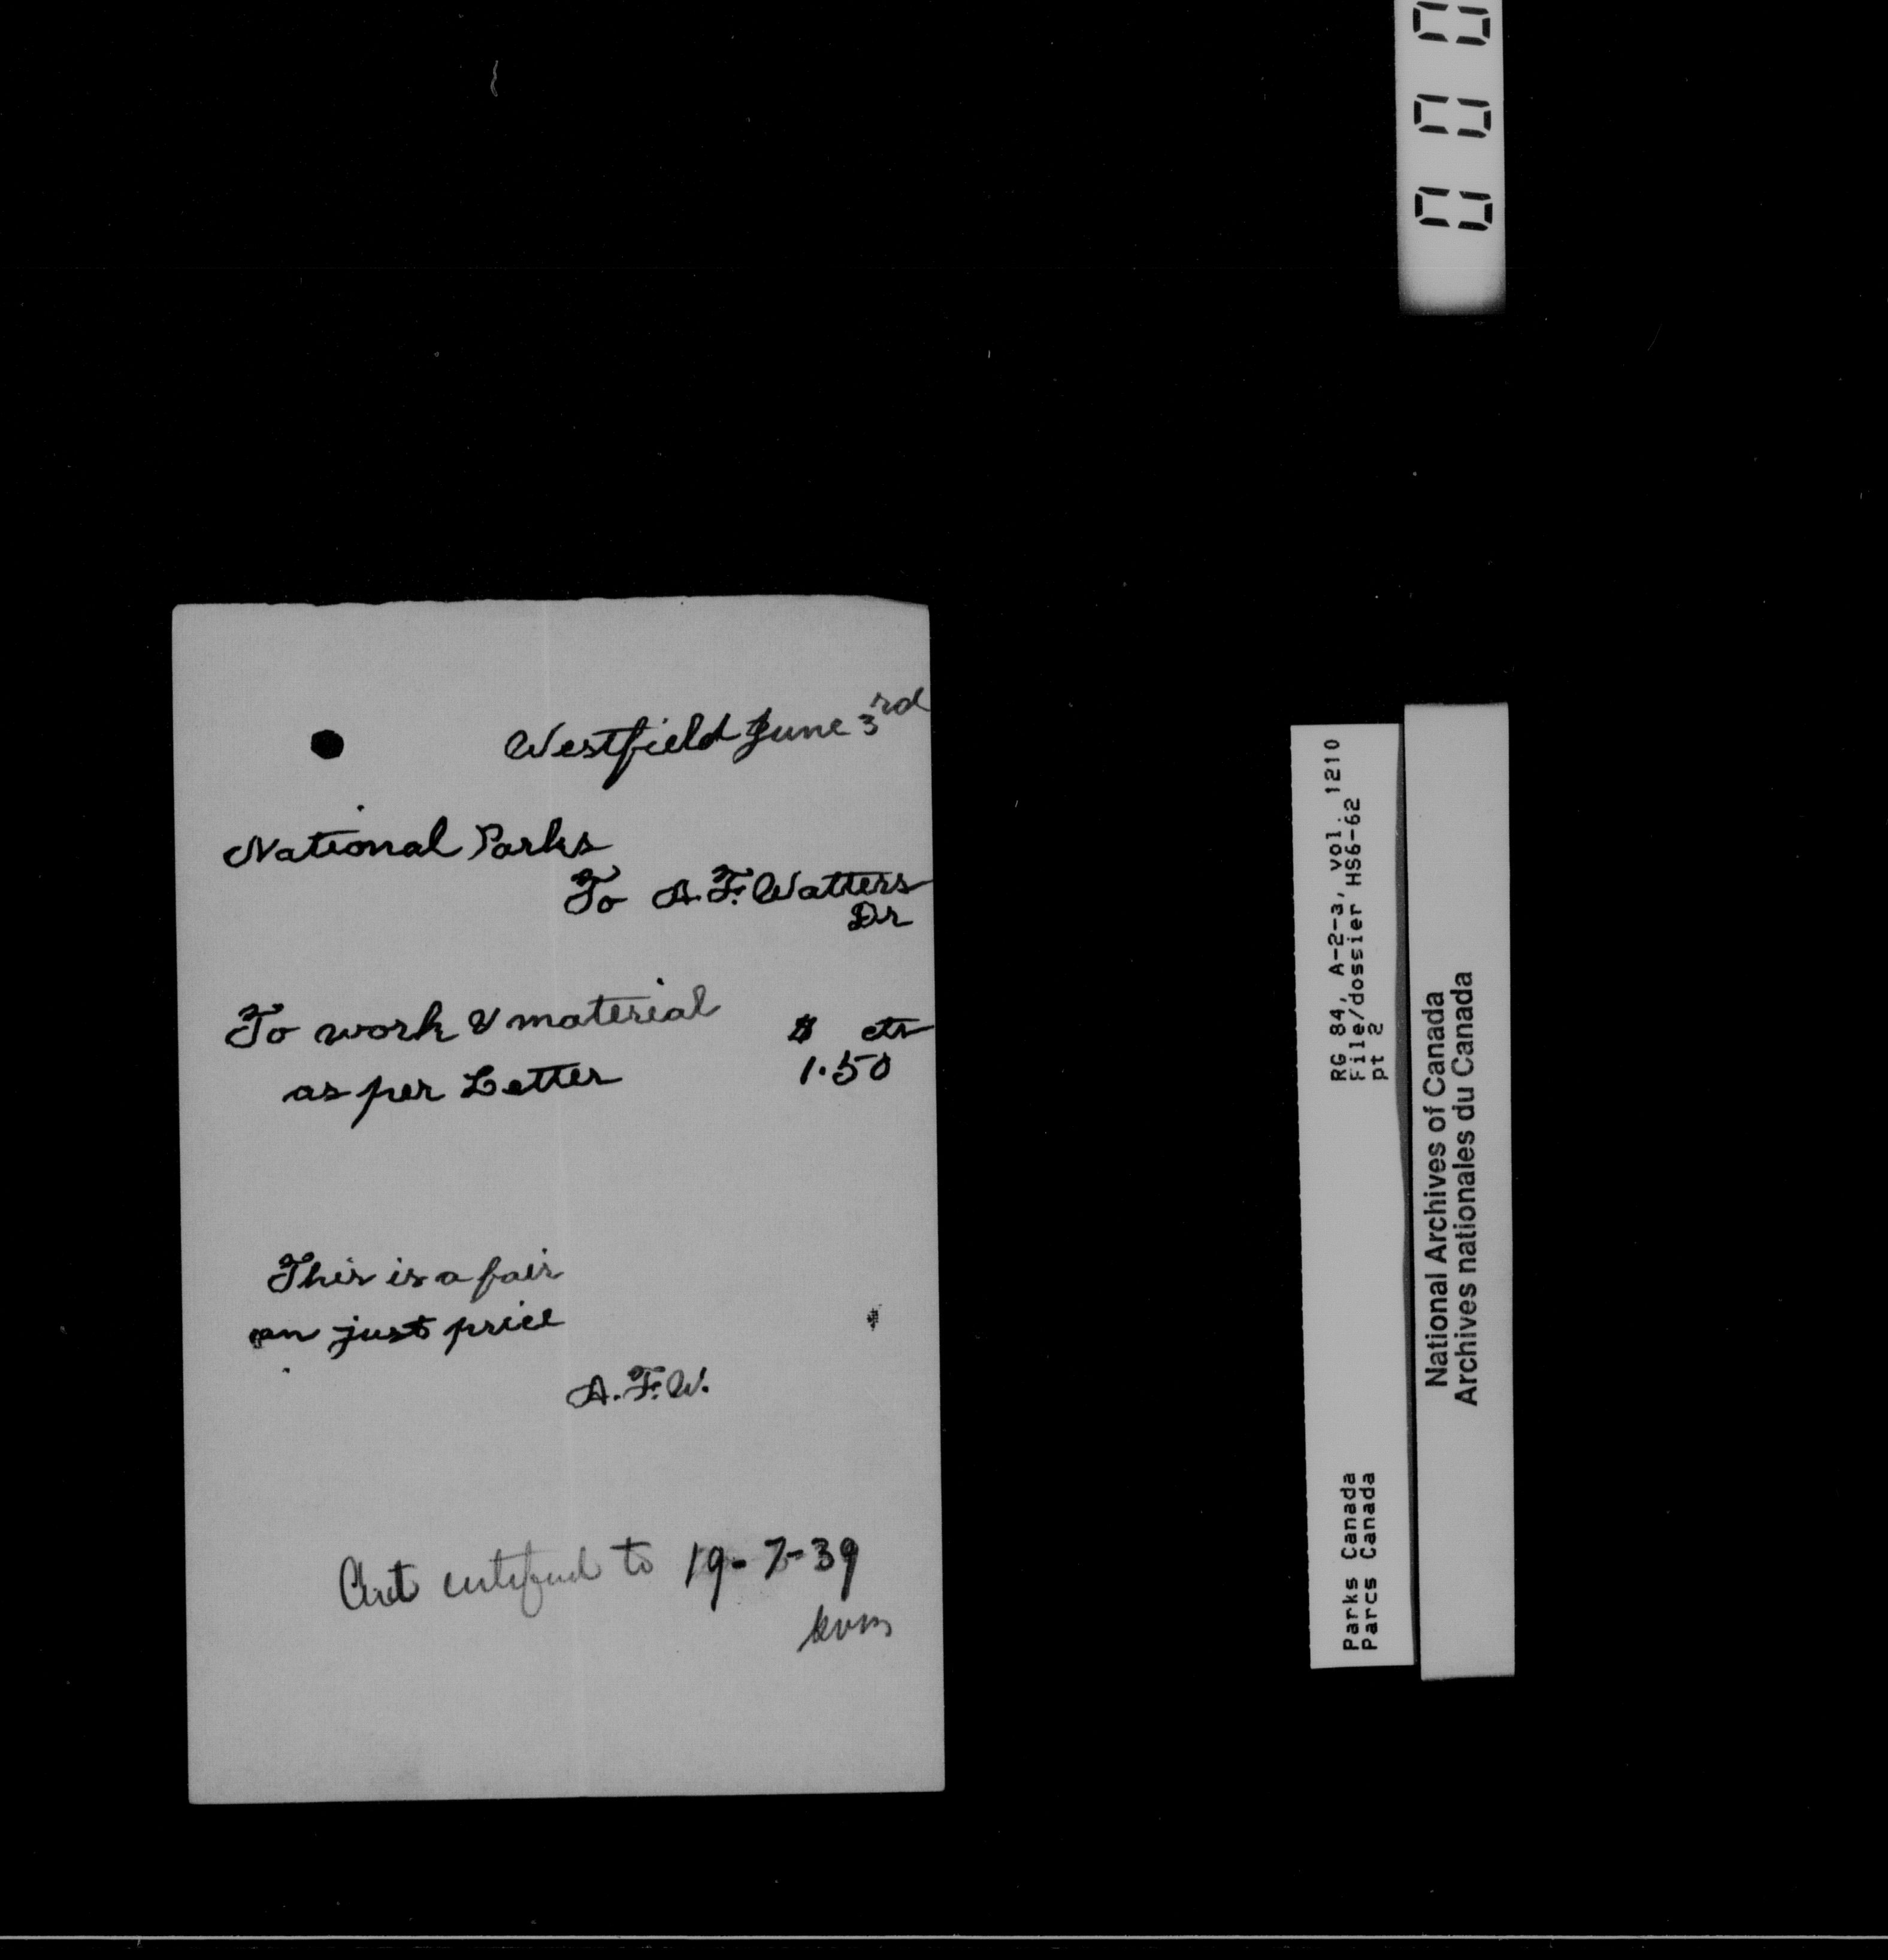 Westfield June 3rd
National Parks
To A.F. Watters
Dr
To work & material $ cts
as per Letter 1.50
This is a fair
an just price
A.F.W.
Acct certified to 19-7-39
RG 84, A-2-3, vol. 1210
File/dossier HS6-62
pt 2
Parks Canada
Parcs Canada
National Archives of Canada
Archives nationales du Canada